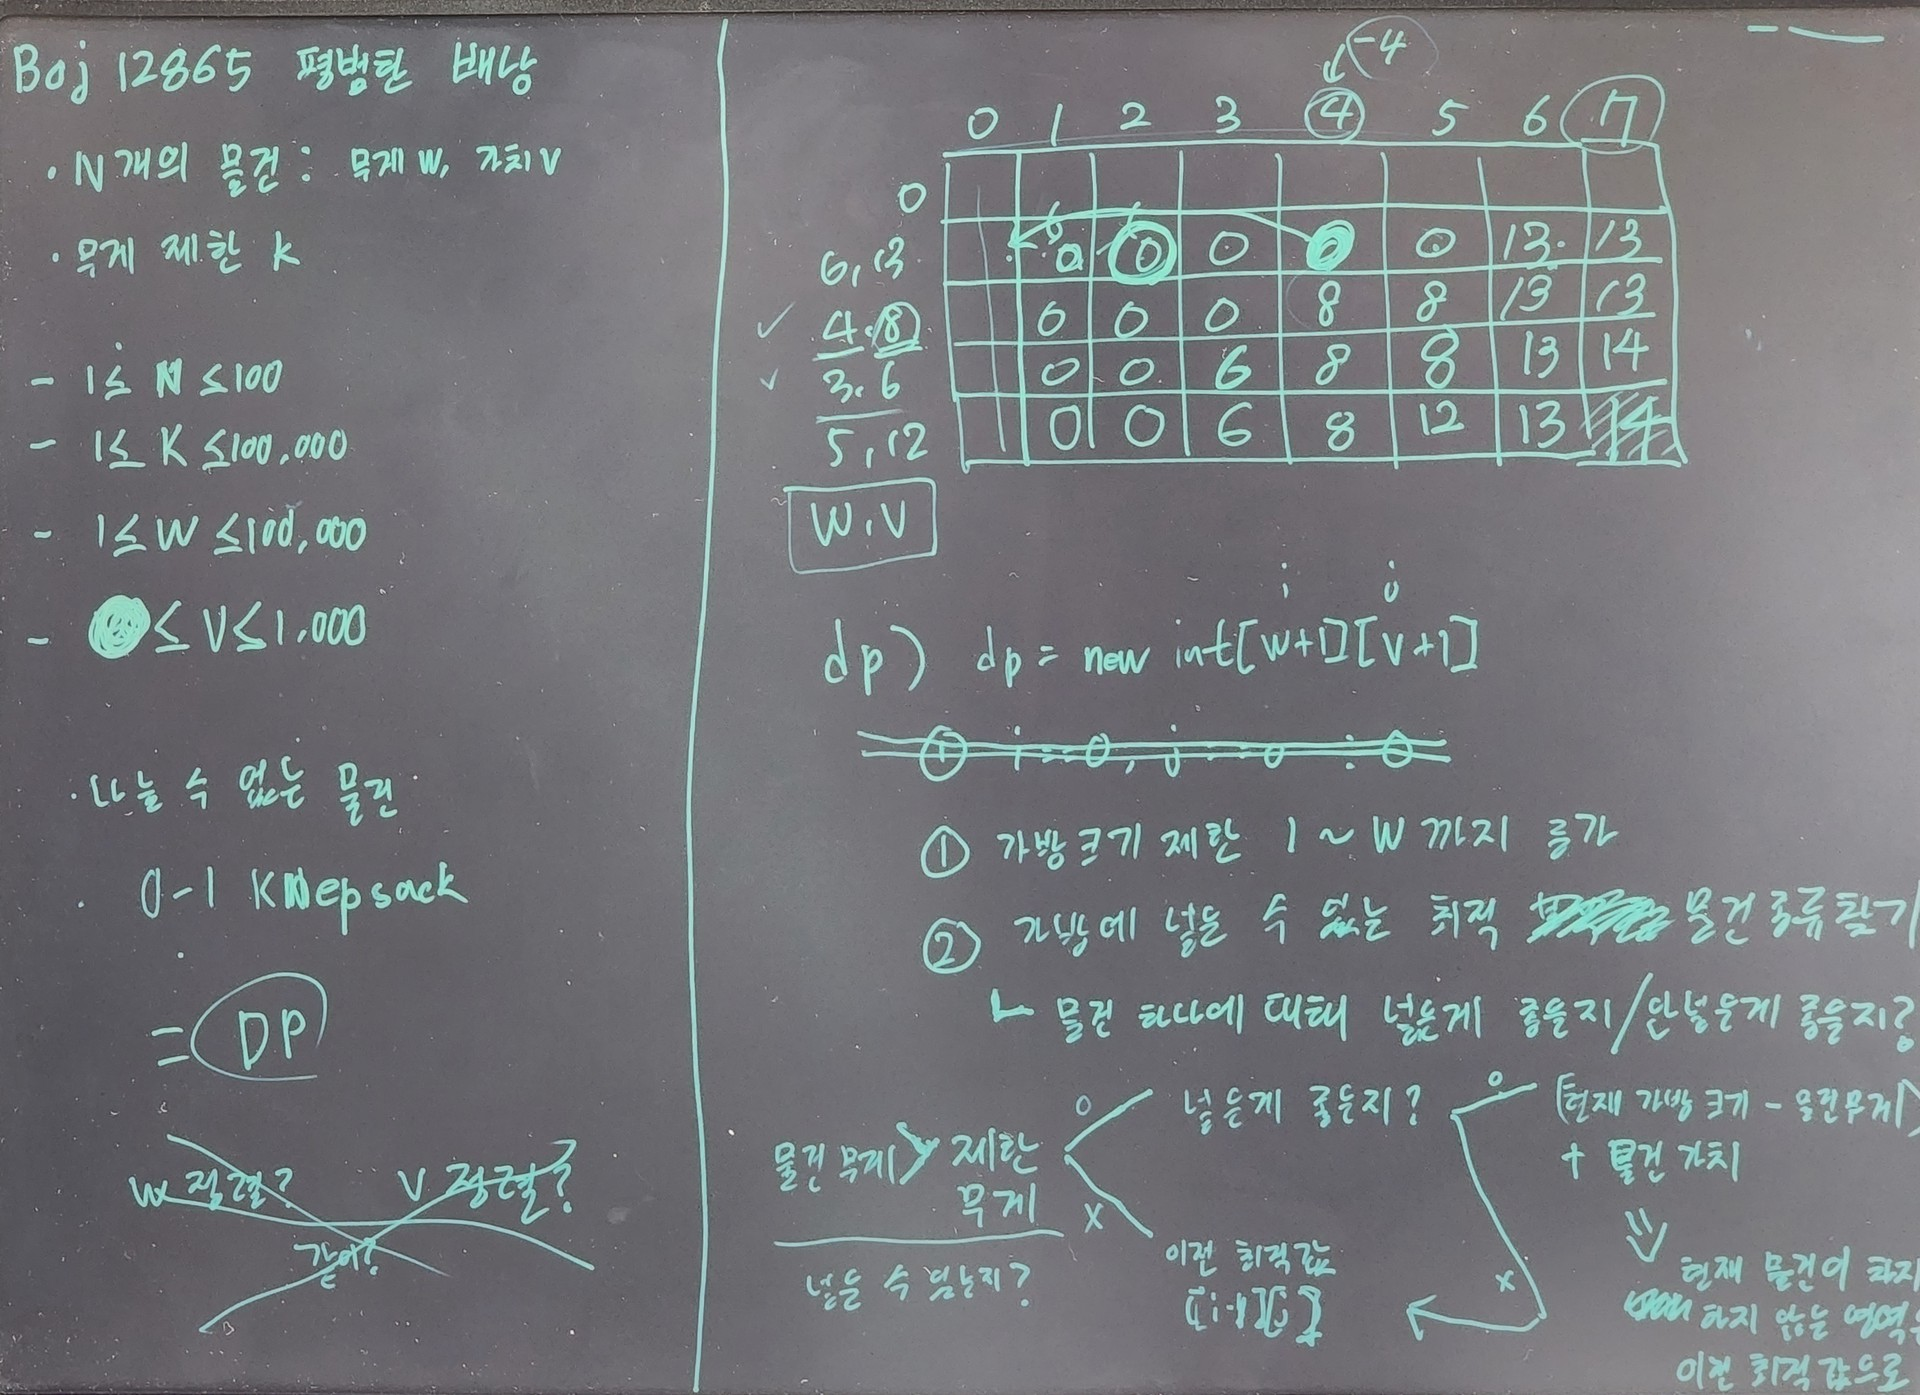 Boj 12865 평범한 배낭
· N개의 물건 : 무게 W, 가치 V
· 무게 제한 K
- 1 ≤ N ≤ 100
- 1 ≤ K ≤ 100,000
- 1 ≤ W ≤ 100,000
- ≤ V ≤ 1,000
· 나눌 수 없는 물건
· 0-1 KNepsack
= DP
W 정렬? V 정렬?
같이?
-4
0 1 2 3 4 5 6 7
0
6, 13 0 0 0 0 0 13 13
4, 8 0 0 0 8 8 13 13
3, 6 0 0 6 8 8 13 14
5, 12 0 0 6 8 12 13 14
W, V
i j
dp) dp = new int[W+1][V+1]
① i = 0, j = 0 : 0
① 가방크기 제한 1 ~ W 까지 증가
② 가방에 넣을 수 있는 최적 물건 종류 찾기
ㄴ 물건 하나에 대해 넣는게 좋을지 / 안넣는게 좋을지?
물건 무게 > 제한 무게
넣을 수 있는지?
O 넣는게 좋은지?
X 이전 최적값
[i-1][j]
O (현재 가방 크기 - 물건무게)
+ 물건 가치
X
현재 물건이 차지
하지 않는 영역
이전 최적값으로